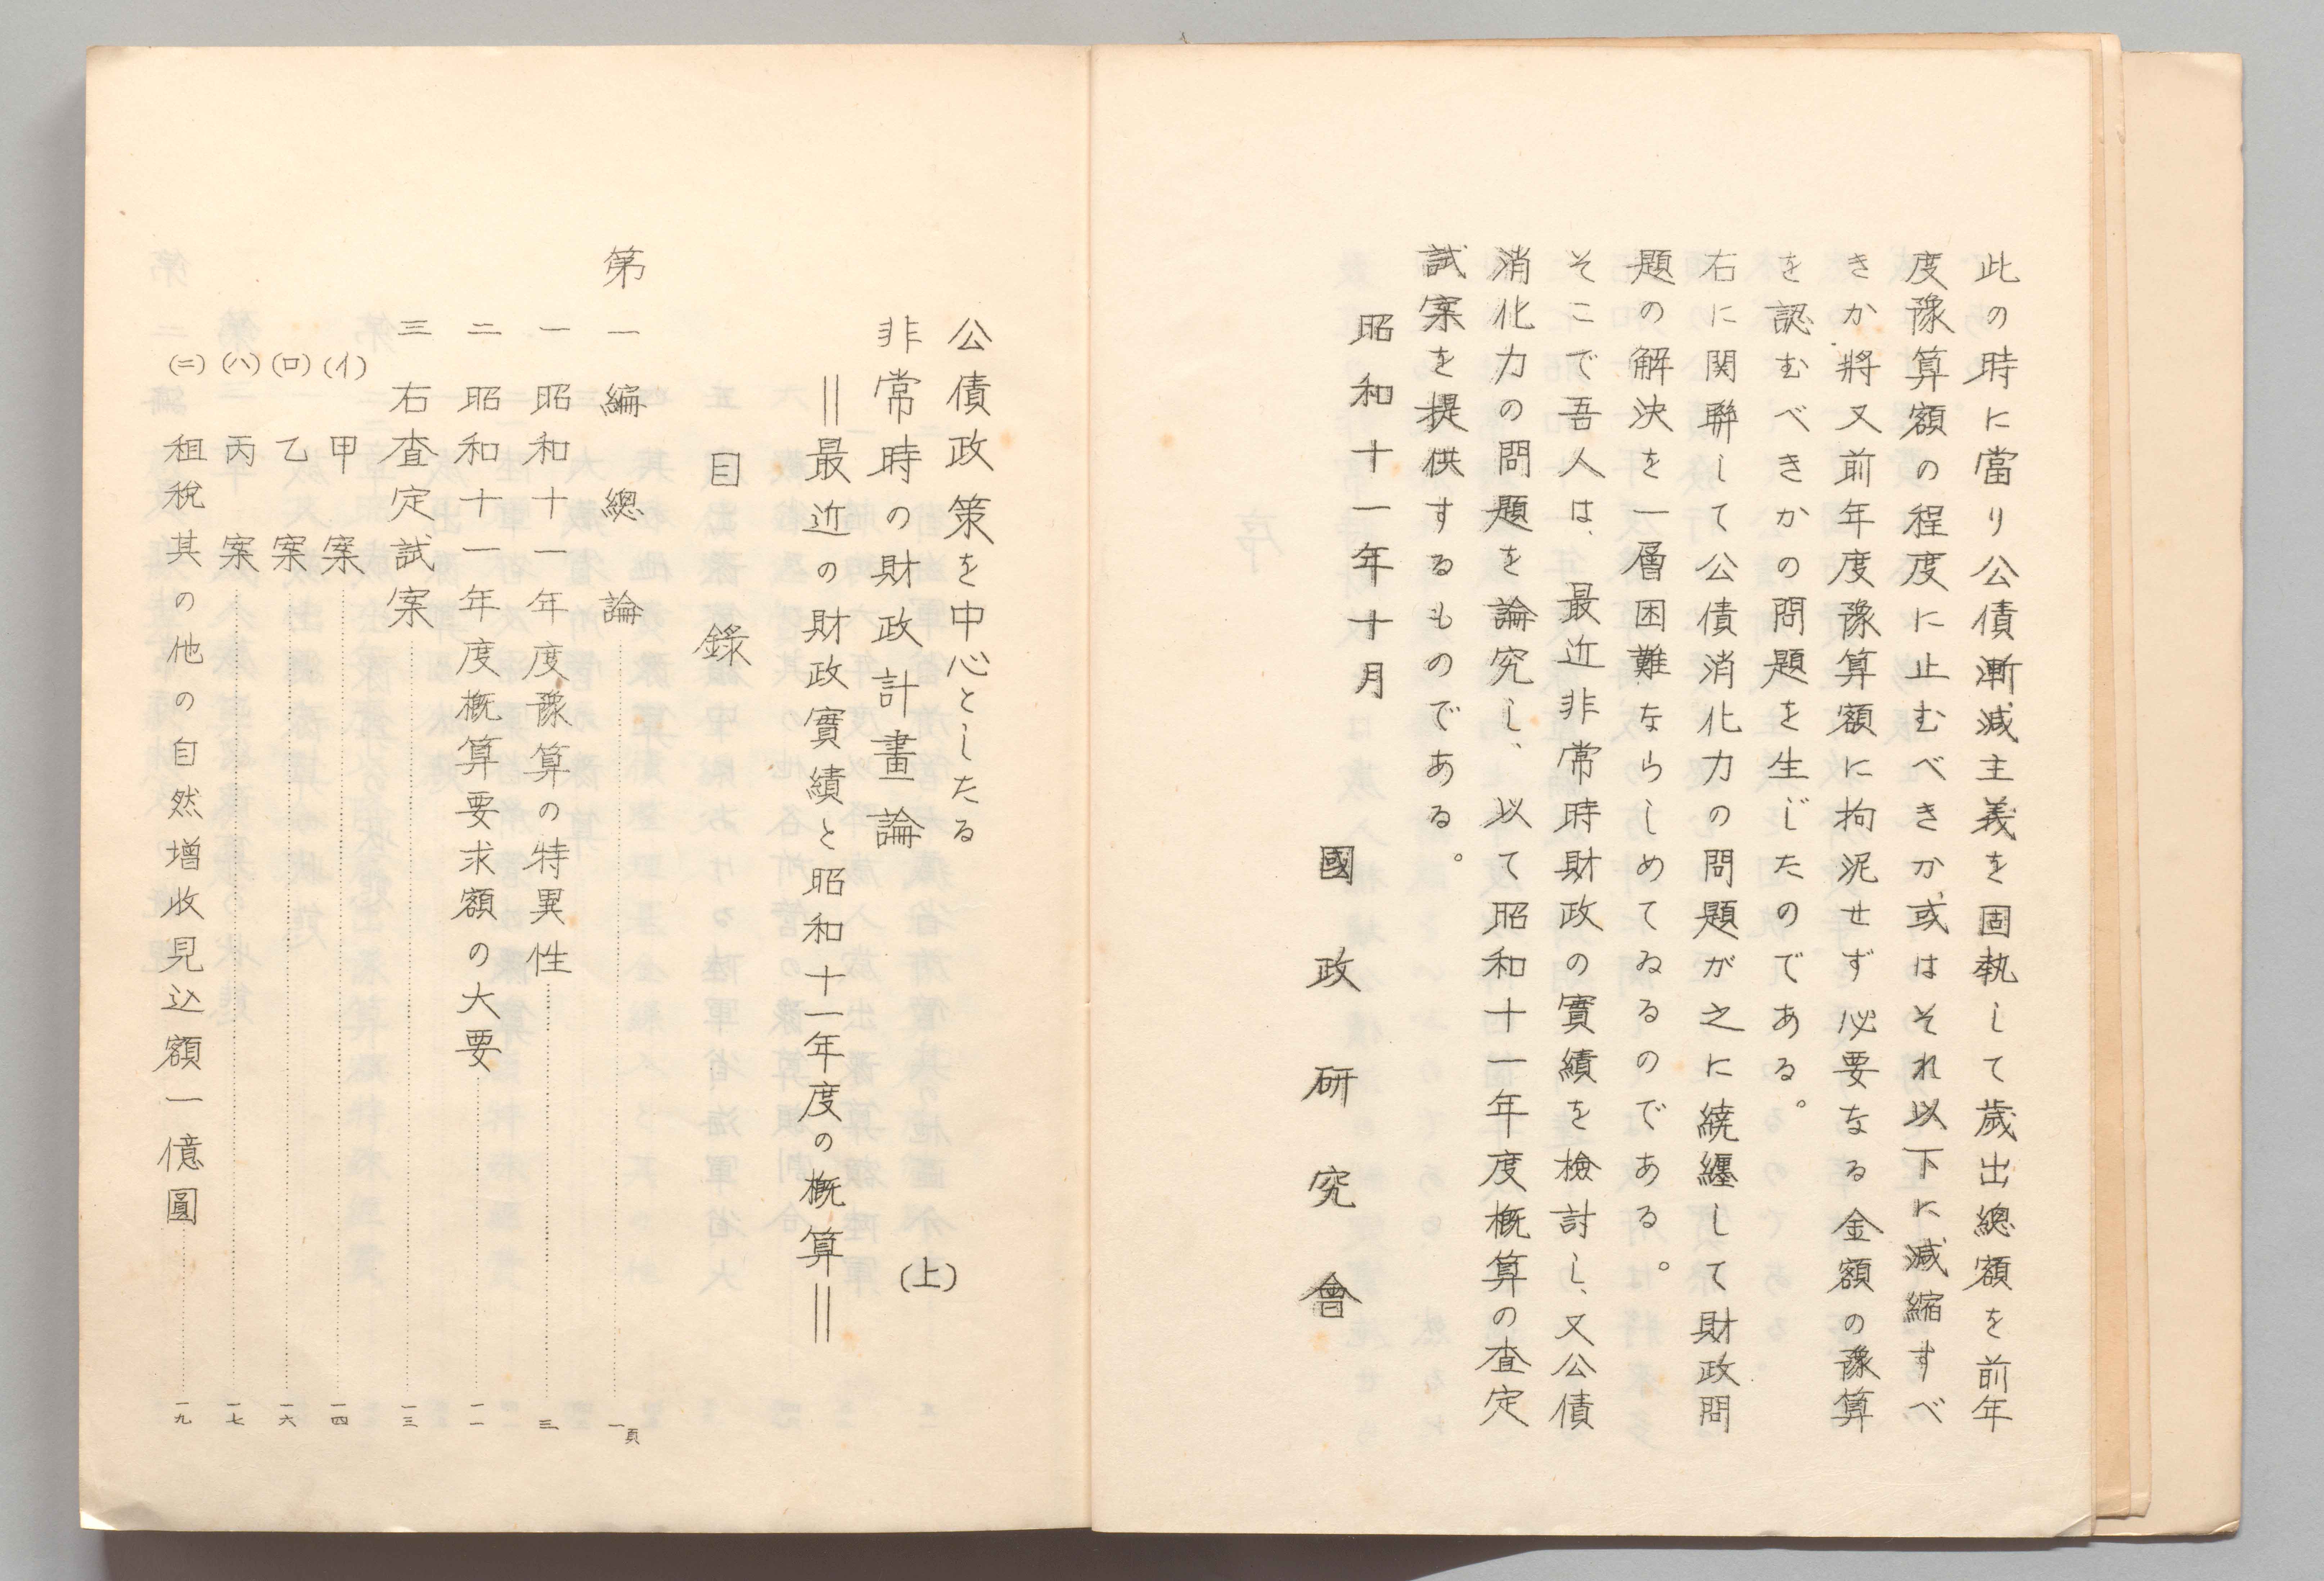 此の時に當り公債漸減主義を固執して歳出總額を前年
度豫算額の程度に止むべきか、或はそれ以下に減縮すべ
きか將又前年度豫算額に拘泥せず必要なる金額の豫算
を認むべきかの問題を生じたのである。
右に関聯して公債消化力の問題が之に繞纏して財政問
題の解決を一層困難ならしめてゐるのである。
そこで吾人は、最近非常時財政の實績を檢討し、又公債
消化力の問題を論究し、以て昭和十一年度概算の査定
試案を提供するものである。
昭和十一年十月
國政研究會
公債政策を中心としたる
非常時の財政計畫論 (上)
＝最近の財政實績と昭和十一年度の概算＝
目錄
第一編 總論 一頁
一 昭和十一年度豫算の特異性 三
二 昭和十一年度概算要求額の大要 一一
三 右査定試案 一三
(イ) 甲案 一四
(ロ) 乙案 一六
(ハ) 丙案 一七
(ニ) 租稅其の他の自然增收見込額一億圓 一九